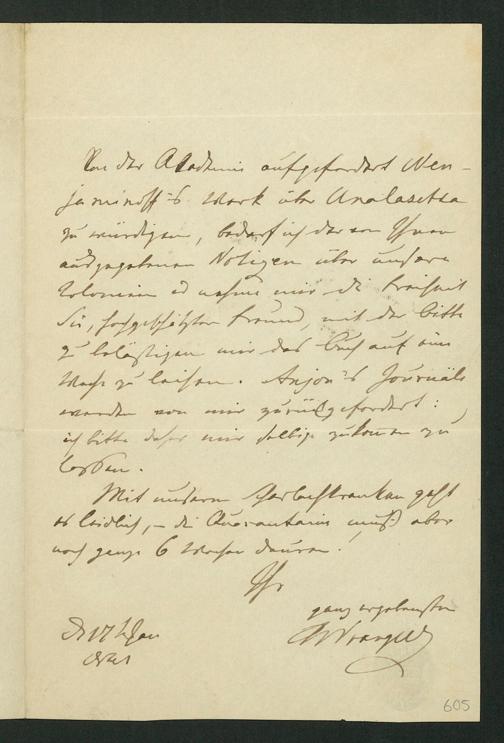 Von der Academie aufgefordert Wen-
jaminoff's Werk über Unalaschka
zu würdigen, bedarf ich der von Ihnen
ausgegebenen Notizen über unsere
Colonien u nehme mir die Freiheit
Sie, hochgeschätzter Freund, mit der Bitte
zu belästigen mir das Buch auf eine
Woche zu leihen. Anjou's Journäle
werden von mir zurückgefordert:
ich bitte daher mir selbige zukommen zu
lassen.
Mit unseren Scharlachkranken geht
es leidlich, – die Quarantaine muß aber
noch ganze 6 Wochen dauern!
Ihr
ganz ergebenster
Wrangell
605